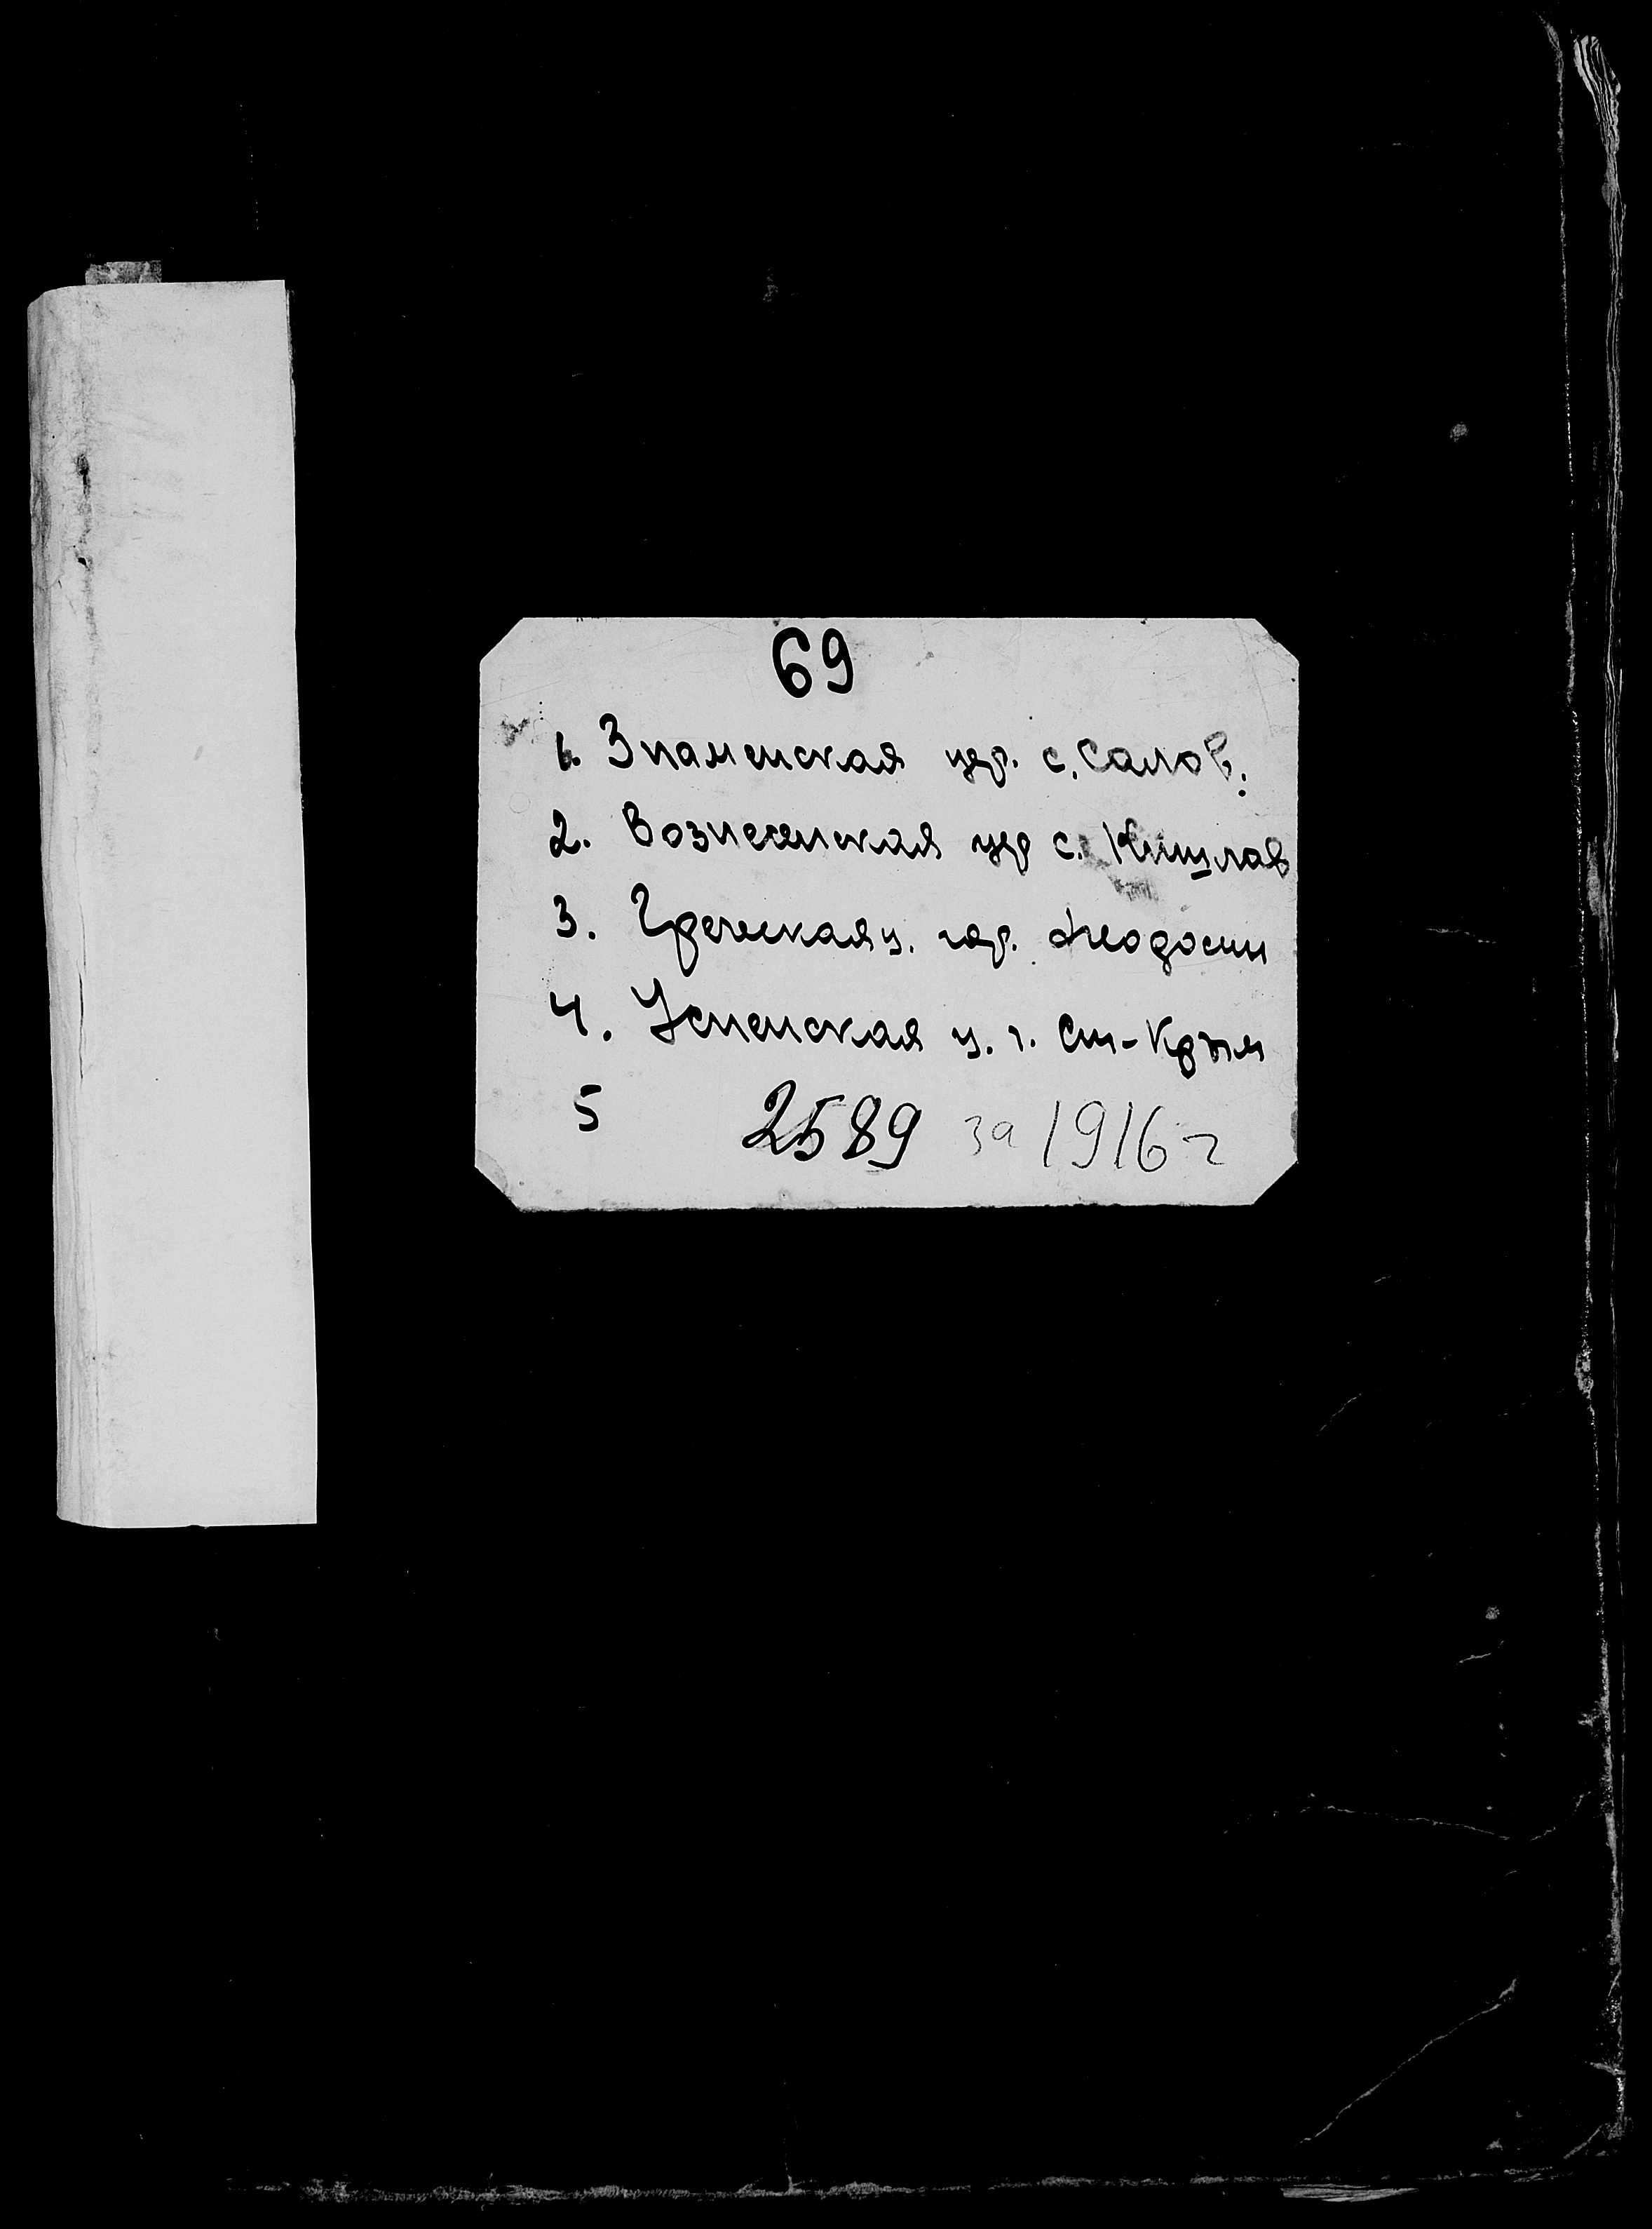 69
1. Знаменская цер. с. Салов.
2. Вознесенская цер с. Кишлав
3. Греческая ц. гор. Феодосии
4. Успенская ц. г. Ст-Крым
5 2589 за 1916 г